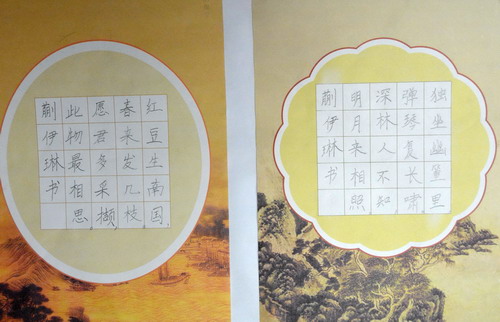 红豆生南国
春来发几枝
愿君多采撷
此物最相思
蒯伊琳书
独坐幽篁里
弹琴复长啸
深林人不知
明月来相照
蒯伊琳书